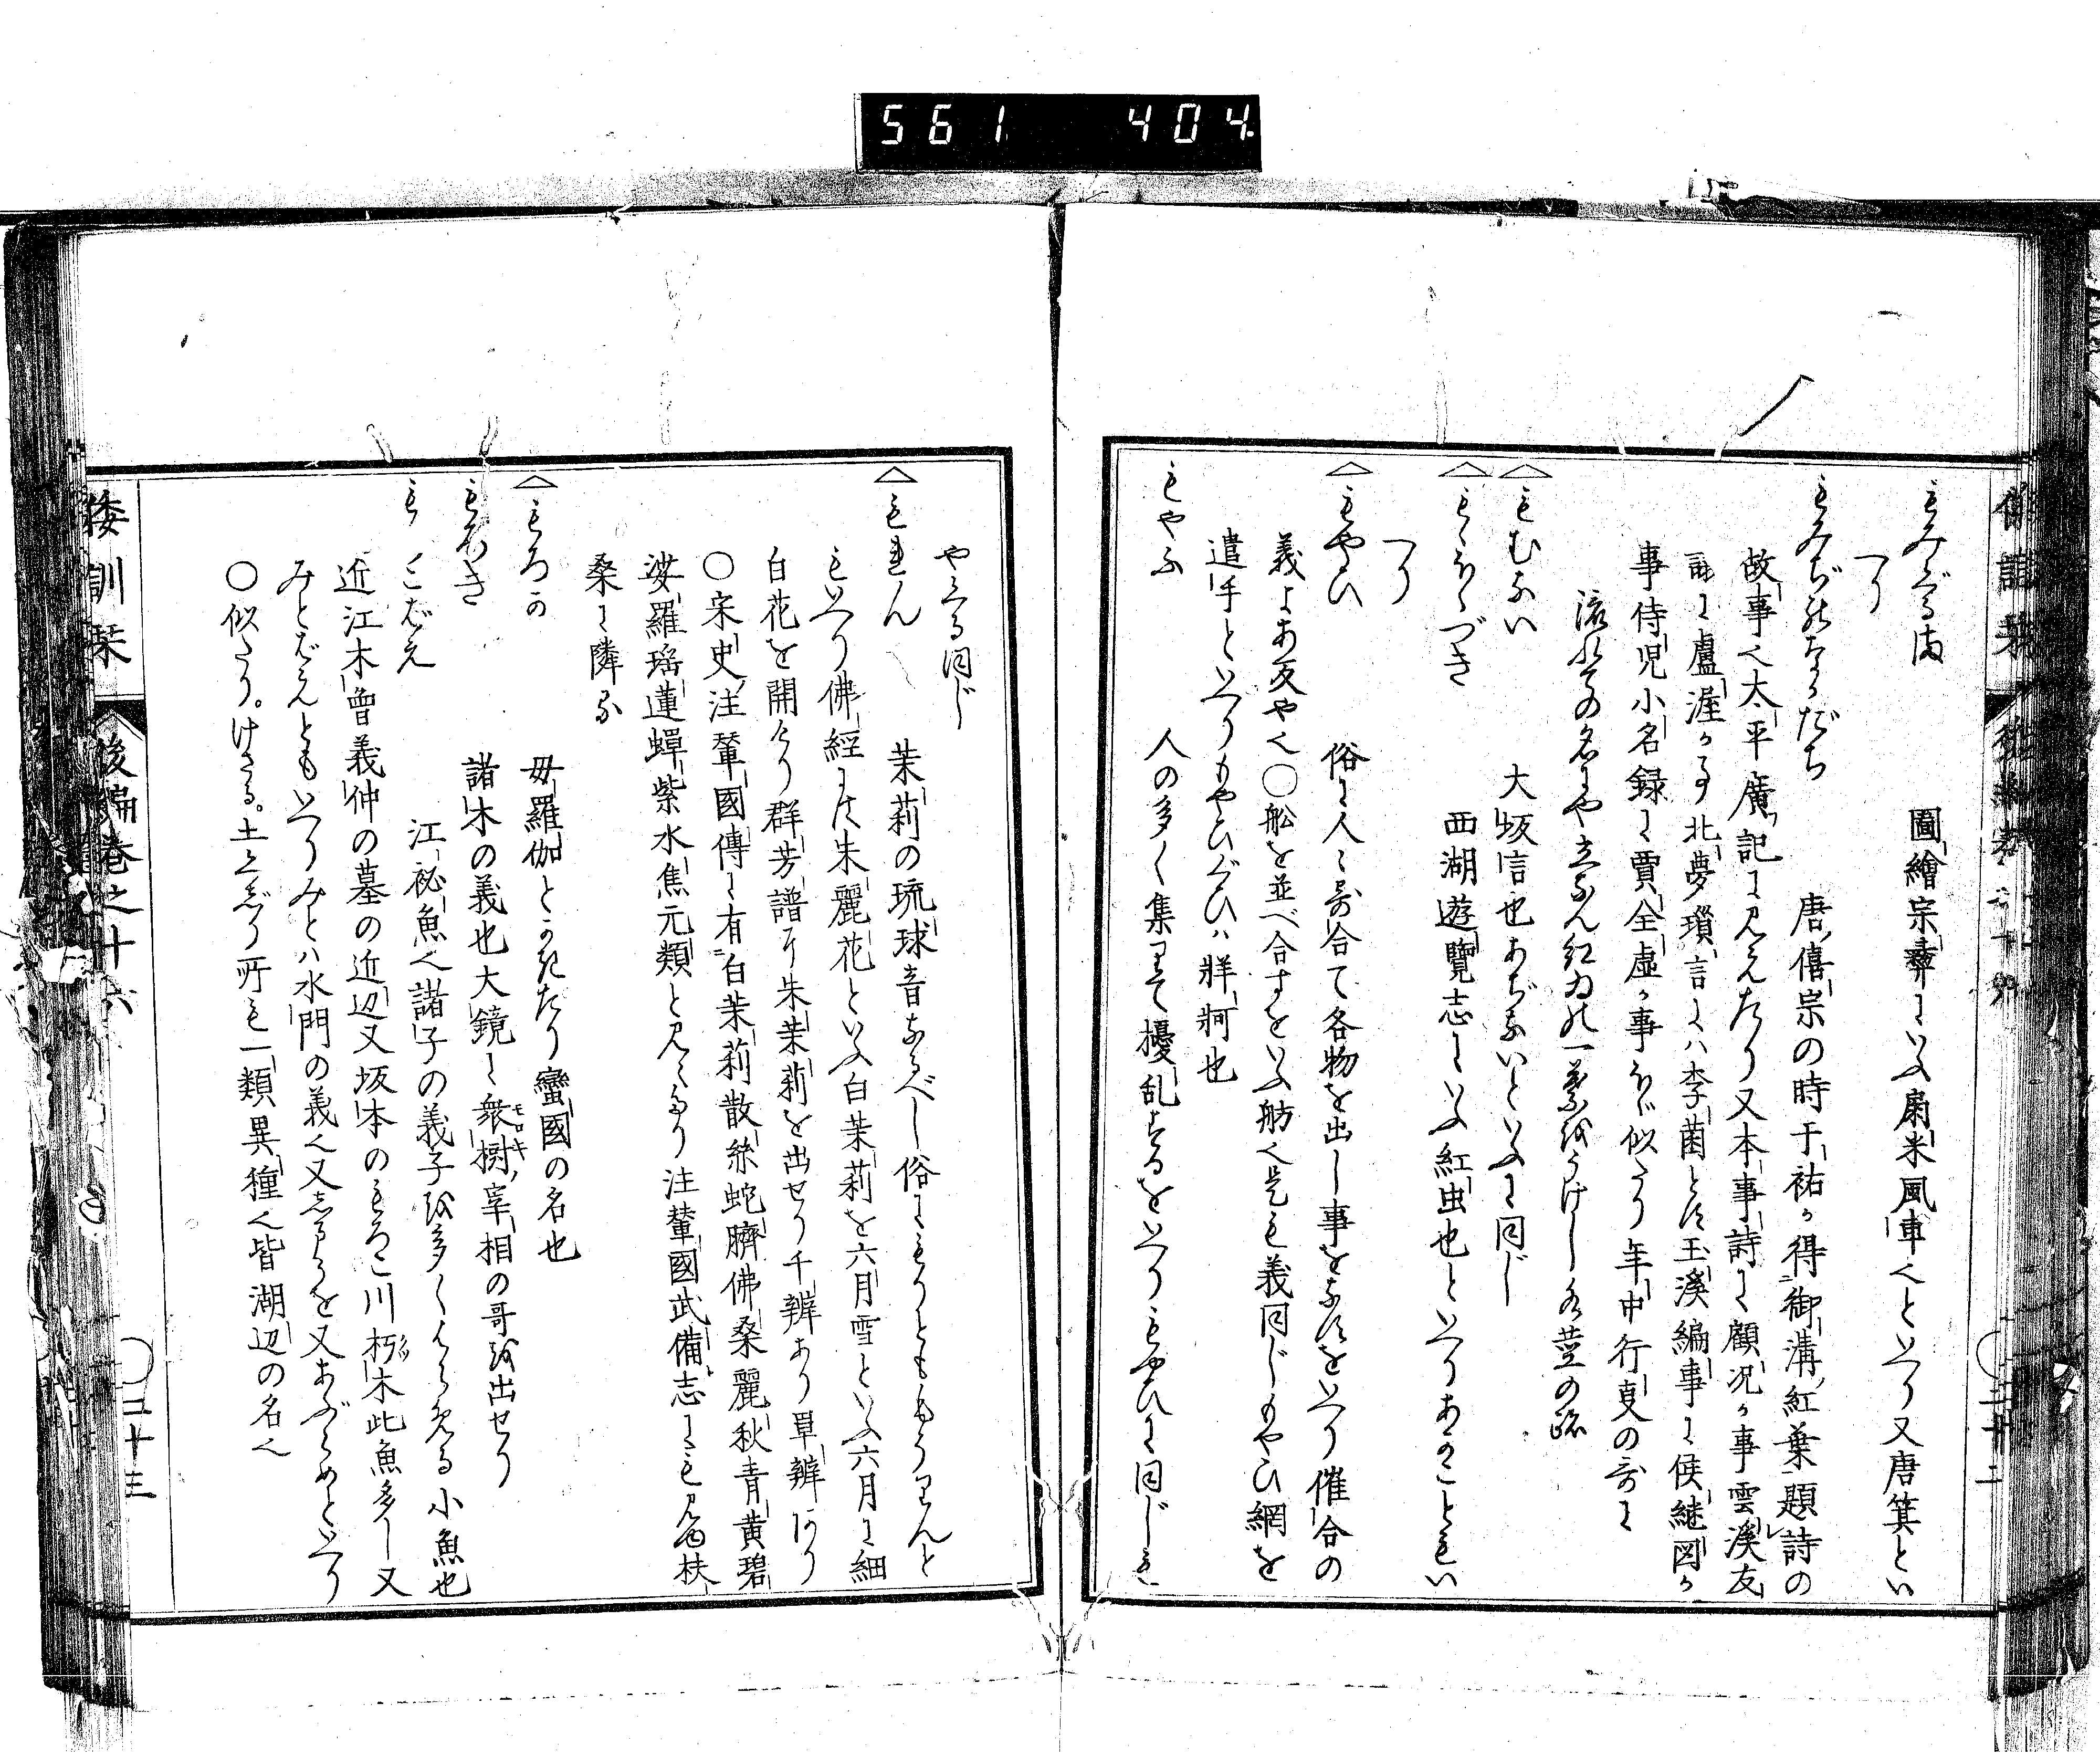 561 404
もみぢるま 圖繪宗彝にいふ扇米風車也といへり又唐箕とい
へり
もみぢのなかだち 唐僖宗の時于祐か得御溝紅葉題詩の
故事也太平廣記に見えたり又本事詩に顧况か事雲溪友
議に盧渥か事北夢瑣言には李茵とす玉溪編事に侯継図か
事侍児小名録に賈全虚か事ほゞ似たり年中行事の哥に
流れその名にや立なん紅のの一葉をうけし水莖の跡
△もむない 大坂言也あぢないといふに同じ
△もゝほゝづき 西湖遊覽志にいふ紅虫也といへりあかこともい
へり
△もやひ 俗に人に寄合て各物を出し事をなすをいへり催合の
義よあ反や也〇舩を並べ合すをいふ舫也是も義同じもやひ網を
遣手といへりもやひぐひハ牂牁也
もやふ 人の多く集りて擾乱するをいへりもやひに同じもき
やへる同じ
△もれん 茉莉の琉球音なるべし俗にもりともまうりんと
もいへり佛經には朱麗花といふ白茉莉を六月雪といふ六月に細
白花を開けり群芳譜に朱茉莉を出せり千瓣あり單瓣あり
〇宋史注輦國傳に有白茉莉散絲蛇臍佛桑麗秋青黄碧
娑羅瑶蓮蟬紫水焦元類と見えたり注輦國武備志にも見ゆ扶
桑に隣れる
△もろか 毋羅伽とかきたり蠻國の名也
もろき 諸木の義也大鏡に衆樹宰相の哥を出せり
もろこばえ 江祕魚也諸子の義子を多くはらめる小魚也
近江木曾義仲の墓の近辺又坂本のもろこ川朽木此魚多し又
みとばえともいへりみとハ水門の義也又志ろうを又あぶらめといへり
〇似たり。けさる。土とじり所も一類異種也皆湖辺の名也
倭訓栞 後編巻之十六 〇三十三